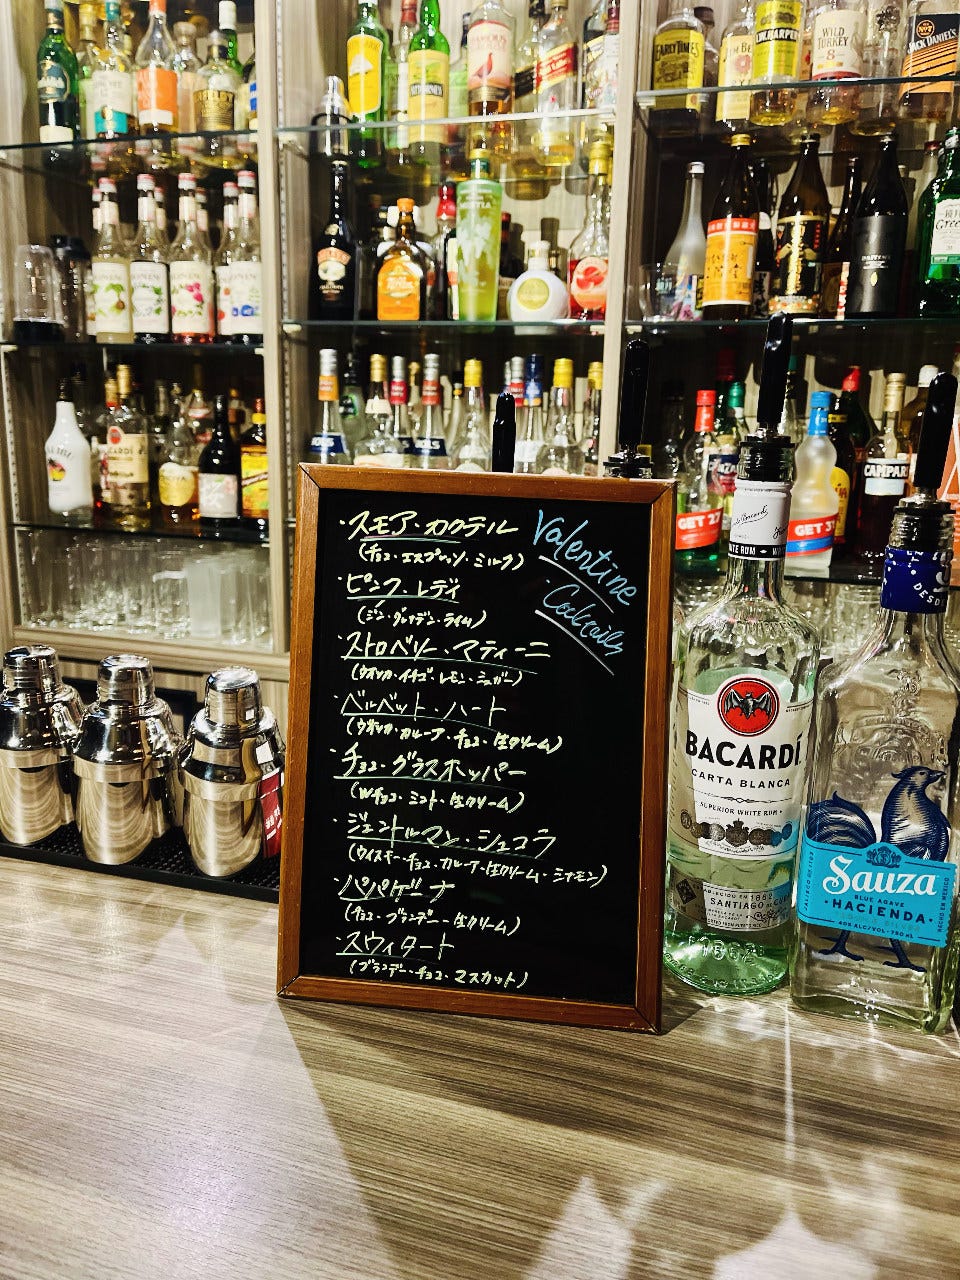 EARLY TIMES
WILD
TURKEY
8
JACK DANIEL'S
CAMPARI
GET 27
GET 31
BACARDÍ
Valentine
・Cocktails
・スモア・カクテル
(チョコ・エスプレッソ・ミルク)
・ピンク・レディ
(ジン・グレナデン・ライム)
・ストロベリー・マティーニ
(ウオッカ・イチゴ・レモン・シュガー)
・ベルベット・ハート
(ウオッカ・カルーア・チョコ・生クリーム)
・チョコ・グラスホッパー
(Wチョコ・ミント・生クリーム)
・ジェントルマン・ショコラ
(ウイスキー・チョコ・カルーア・生クリーム・シナモン)
・パパゲーナ
(チョコ・ブランデー・生クリーム)
・スウィタート
(ブランデー・チョコ・マスカット)
BACARDÍ
CARTA BLANCA
SUPERIOR WHITE RUM
ESTABLECIDO EN 1862
SANTIAGO DE CUBA
Sauza
BLUE AGAVE
・HACIENDA・
40% ALC/VOL・750 ML
HECHO EN MEXICO